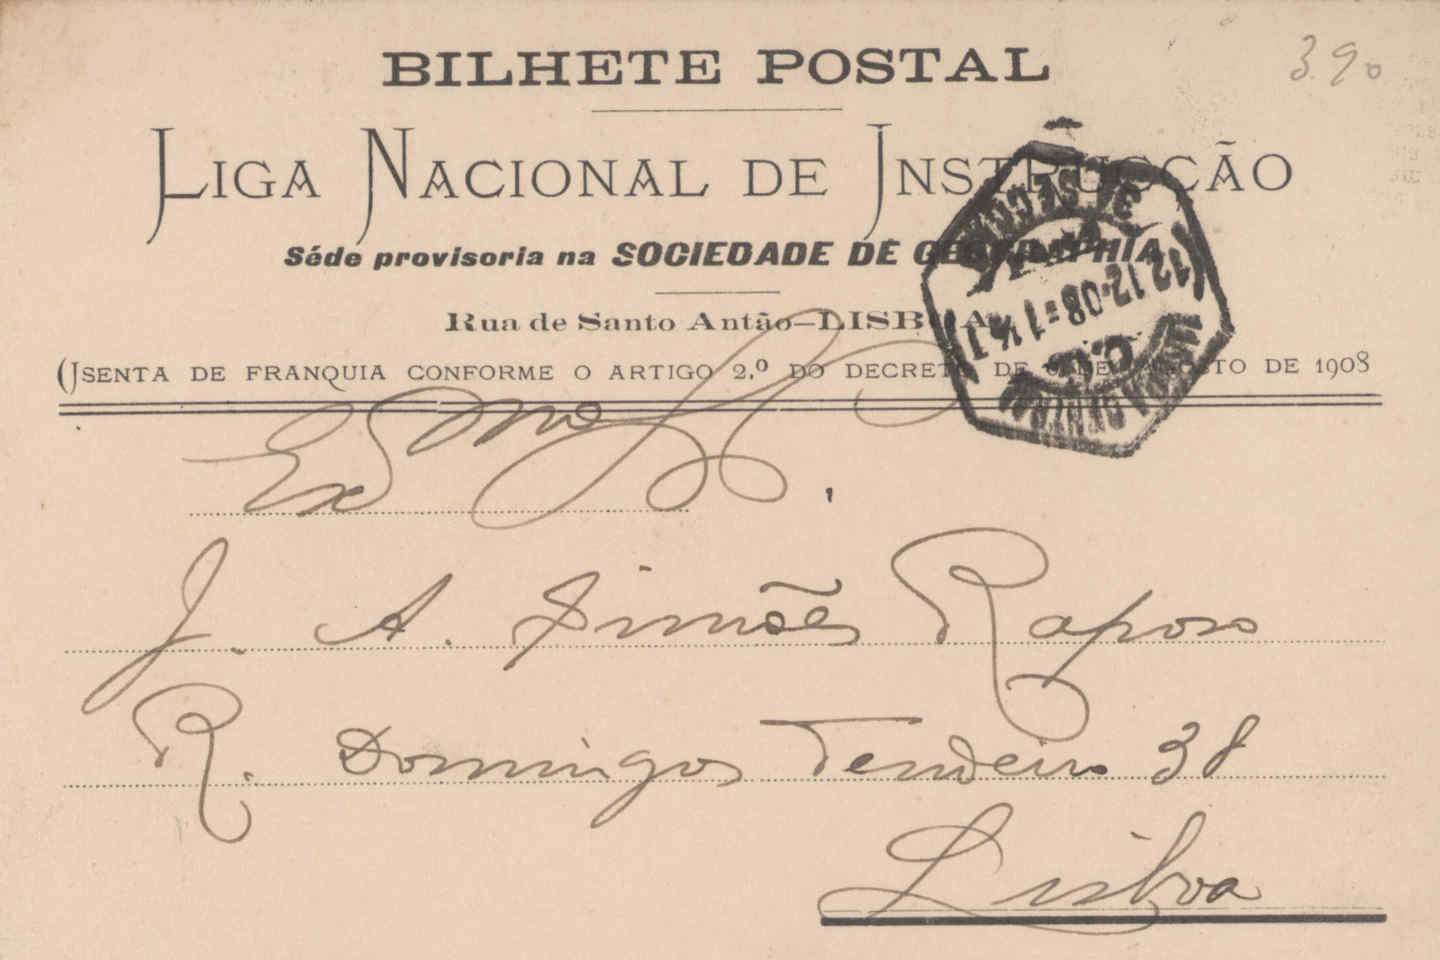 BILHETE POSTAL
3.90
LIGA NACIONAL DE INSTRUCÇÃO
Séde provisoria na SOCIEDADE DE GEOGRAPHIA
Rua de Santo Antão—LISBOA
(ISENTA DE FRANQUIA CONFORME O ARTIGO 2.º DO DECRETO DE DE AGOSTO DE 1908
3A SECÇÃO
12.12.08
LISBOA CENTRAL
Exmo Sr.
J. A. Simões Raposo
R. Domingos Tendeiro 38
Lisboa